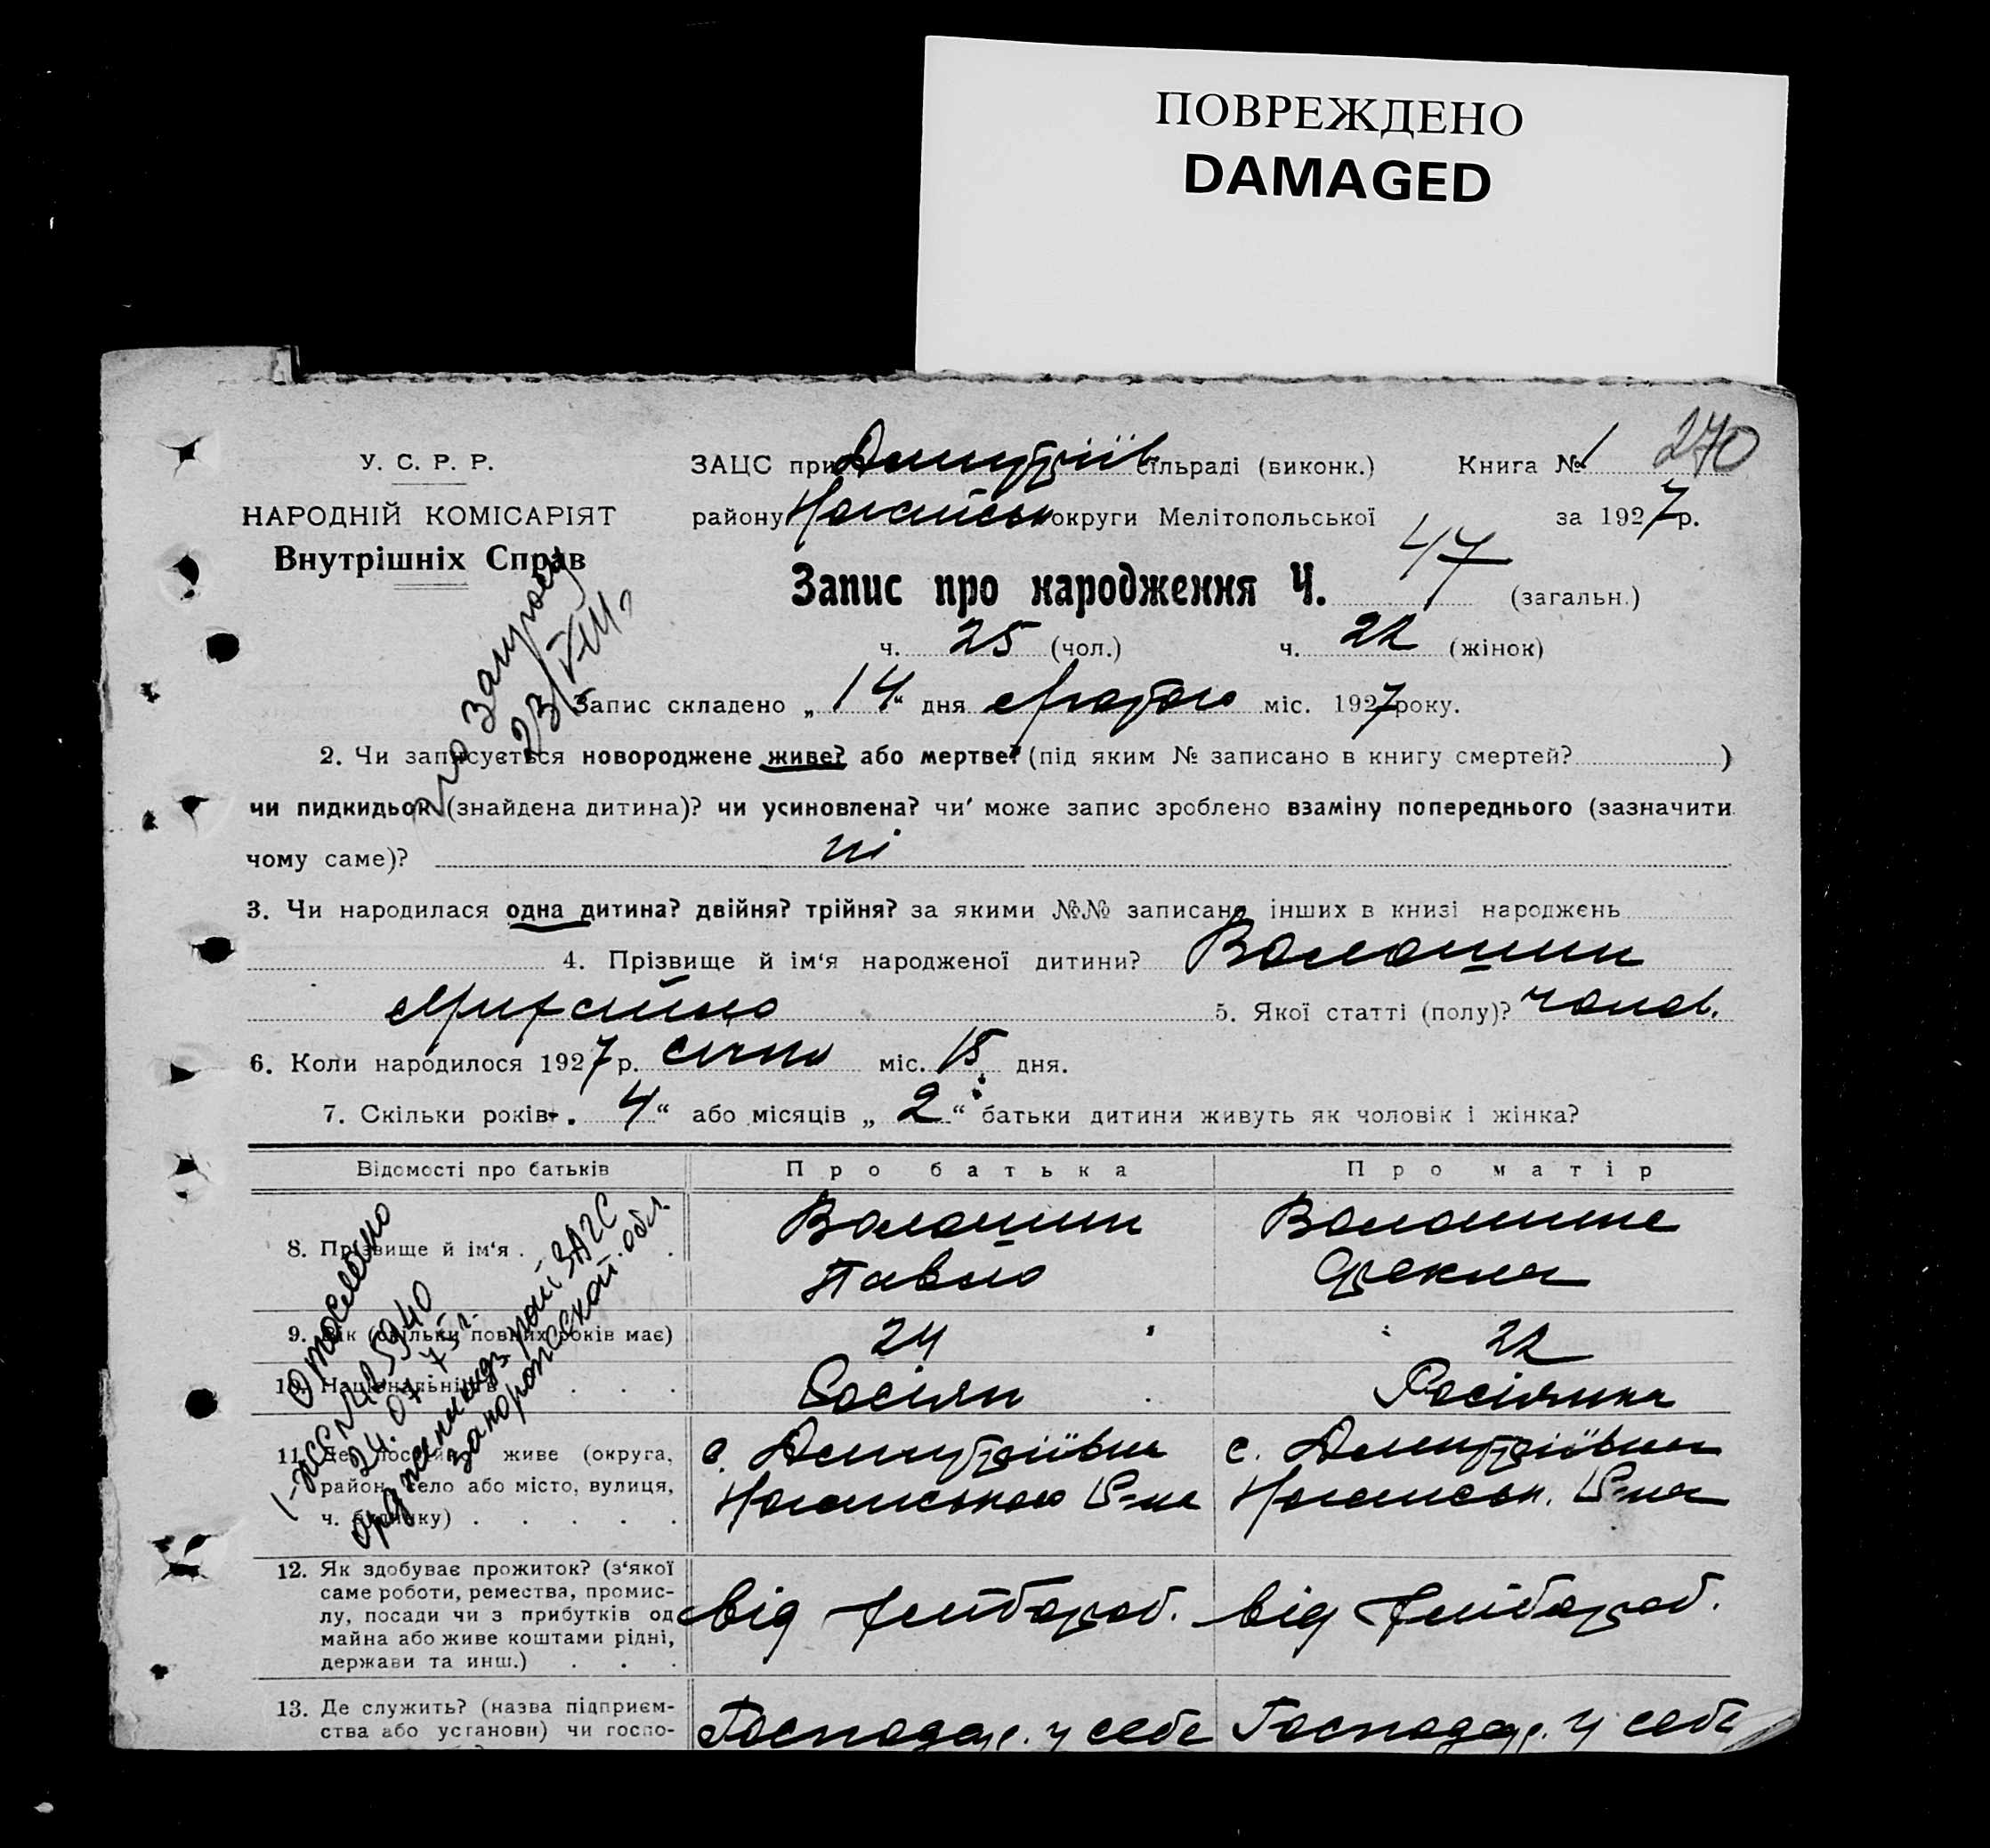 ПОВРЕЖДЕНО
DAMAGED
У. С. Р. Р.
НАРОДНІЙ КОМІСАРІЯТ
Внутрішніх Справ
ЗАЦС при Дмитріїв сільраді (виконк.) Книга № 1 270
району Ногайськ округи Мелітопольської за 1927 р.
Запис про народження Ч. 47 (загальн.)
ч. 25 (чол.) ч. 22 (жінок)
Запис складено „ 14 “ дня Лютого міс. 1927 року.
2. Чи записується новороджене живе? або мертве? (під яким № записано в книгу смертей? )
чи пидкидьок (знайдена дитина)? чи усиновлена? чи може запис зроблено взаміну попереднього (зазначити
чому саме)? ні
3. Чи народилася одна дитина? двійня? трійня? за якими №№ записано інших в книзі народжень
4. Прізвище й ім'я народженої дитини? Волошин
Михайло 5. Якої статті (полу)? чолов.
6. Коли народилося 1927 р. січня міс. 15 дня.
7. Скільки років 4 “ або місяців „ 2 “ батьки дитини живуть як чоловік і жінка?
Відомості про батьків Про батька Про матір
8. Прізвище й ім'я . Волошин Волошина
Павло Фекла
9. Вік (скільки повних років має) 24 22
10. Національність . . . Росіян Росіянка
11. Де постійно живе (округа, с. Дмитріївка с. Дмитріївка
район, село або місто, вулиця, Ногайського Р-на Ногайськ. Р-на
ч. будинку) . . . . .
12. Як здобуває прожиток? (з'якої
саме роботи, ремества, промис-
лу, посади чи з прибутків од від хлібороб. від хлібороб.
майна або живе коштами рідні,
держави та инш.) . . .
13. Де служить? (назва підприєм-
ства або установи) чи госпо- Господар. у себе Господар. у себе
по запросу
23/VIII
Отослано
24.07.75 г.
райЗАГС
запорожской обл.